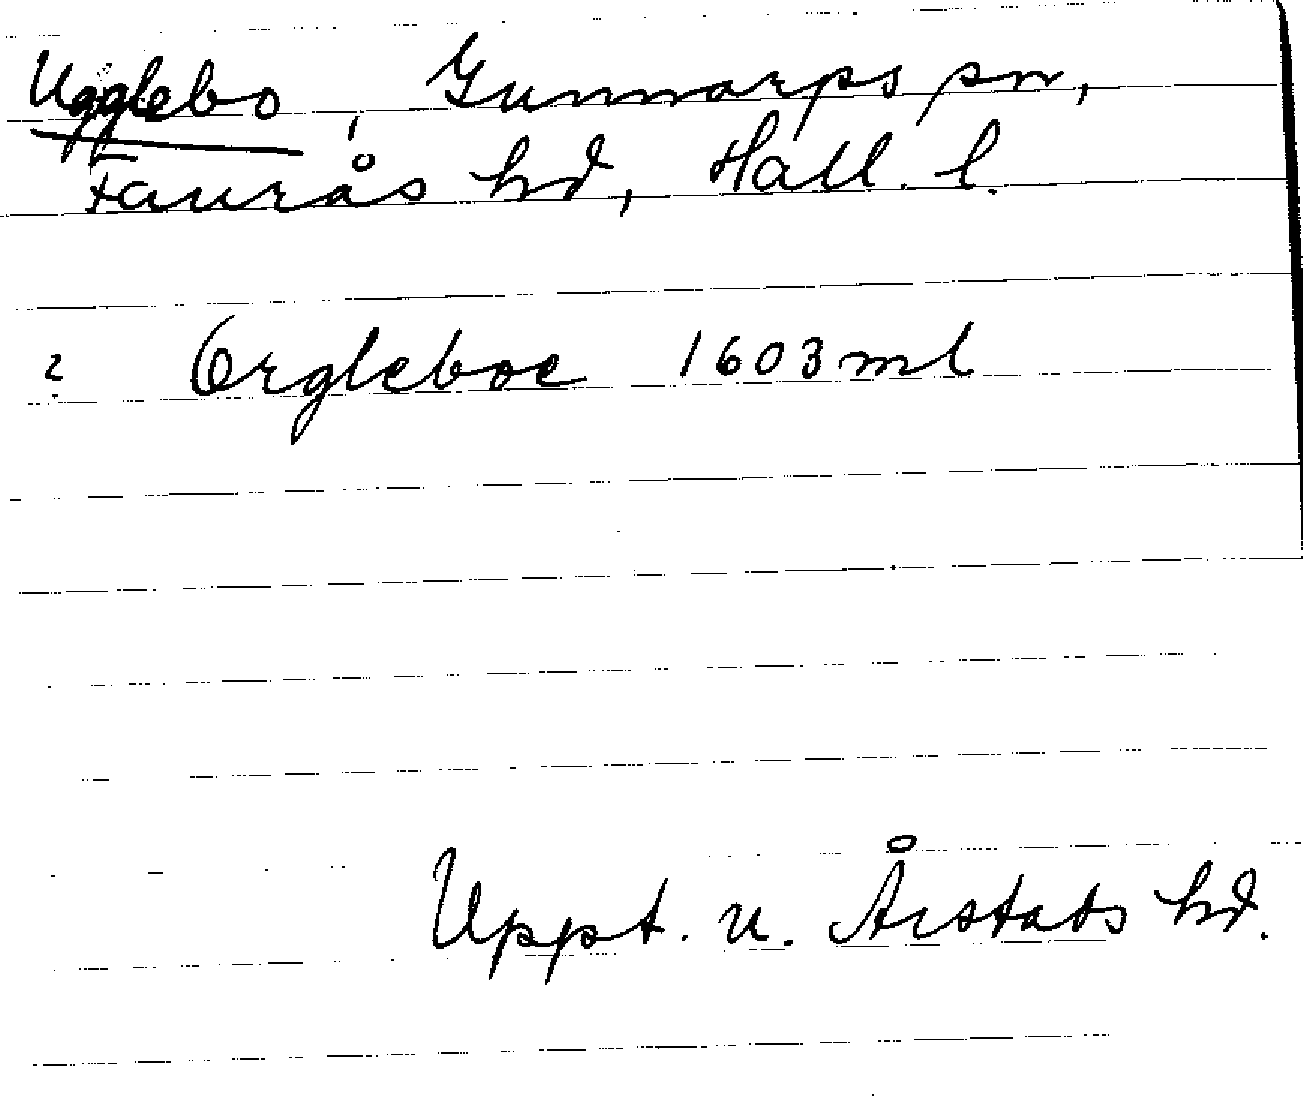 Ugglebo, Gunnarps sn,
Faurås hd, Hall. l.
? Orgleboe 1603 ml
Uppt. u. Årstads hd.